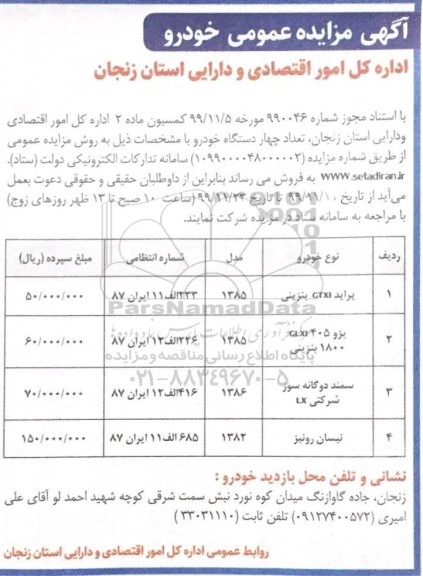 آگهی مزایده عمومی خودرو
اداره کل امور اقتصادی و دارایی استان زنجان
با استناد مجوز شماره ۹۹۰۰۴۶ مورخه ۹۹/۱۱/۵ کمسیون ماده ۲ اداره کل امور اقتصادی
ودارایی استان زنجان، تعداد چهار دستگاه خودرو با مشخصات ذیل به روش مزایده عمومی
از طریق شماره مزایده (۱۰۹۹۰۰۰۰۴۸۰۰۰۰۰۲) سامانه تدارکات الکترونیکی دولت (ستاد)،
www.setadiran.ir به فروش می رساند بنابراین از داوطلبان حقیقی و حقوقی دعوت بعمل
می‌آید از تاریخ تا تاریخ (ساعت ۱۰ صبح تا ۱۳ ظهر روزهای زوج)
با مراجعه به سامانه ستاد در مزایده شرکت نمایند.
ردیف نوع خودرو مدل شماره انتظامی مبلغ سپرده (ریال)
۱ پراید GTXI بنزینی ۱۳۸۵ ۲۳۳الف۱۱ ایران ۸۷ ۵۰/۰۰۰/۰۰۰
۲ پژو ۴۰۵ GLXI ۱۸۰۰ بنزینی ۱۳۸۵ ۲۲۶الف۱۲ ایران ۸۷ ۶۰/۰۰۰/۰۰۰
۳ سمند دوگانه سوز شرکتی LX ۱۳۸۶ ۴۱۶الف۱۲ ایران ۸۷ ۷۰/۰۰۰/۰۰۰
۴ نیسان رونیز ۱۳۸۲ ۶۸۵ الف۱۱ ایران ۸۷ ۱۵۰/۰۰۰/۰۰۰
ParsNamadData
پایگاه اطلاع رسانی مناقصه و مزایده
۰۲۱-۸۸۳۴۹۶۷۰-۵
نشانی و تلفن محل بازدید خودرو :
زنجان، جاده گاوازنگ میدان کوه نورد نبش سمت شرقی کوچه شهید احمد لو آقای علی
امیری (۰۹۱۲۷۴۰۰۵۷۲) تلفن ثابت (۳۳۰۳۱۱۱۰)
روابط عمومی اداره کل امور اقتصادی و دارایی استان زنجان